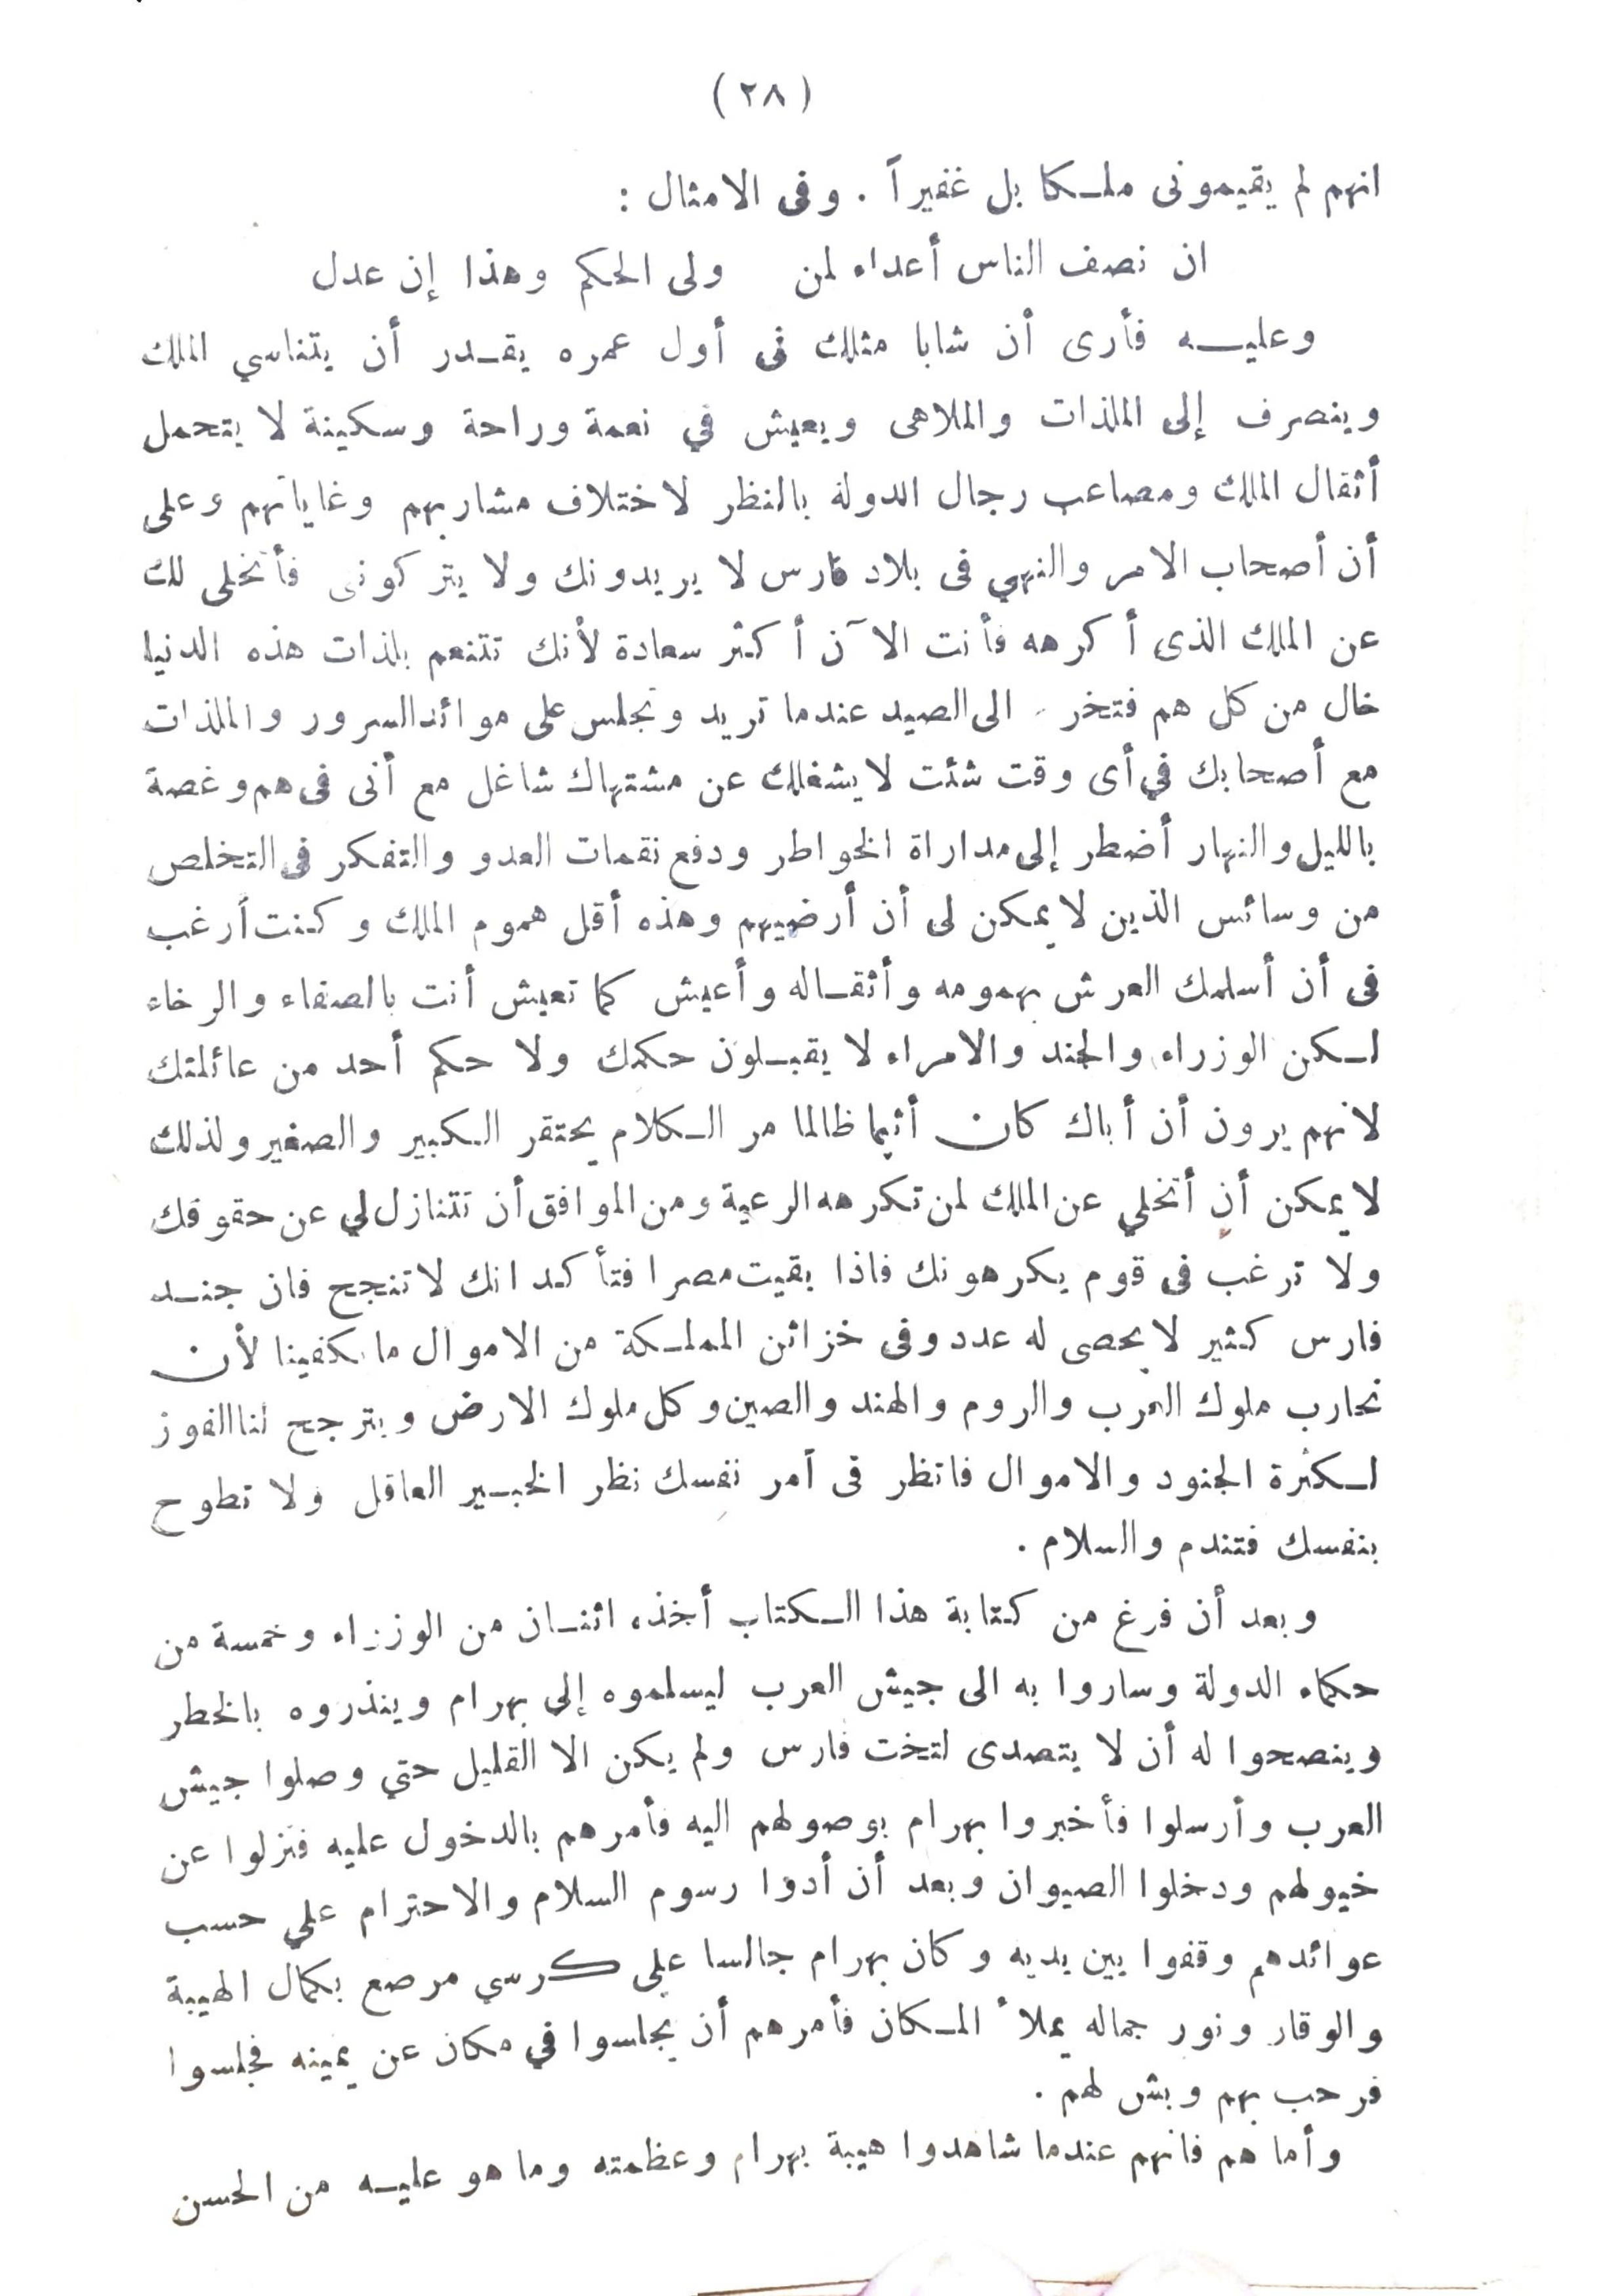 (٢٨)
انهم لم يقيمونى ملكا بل غفيراً . وفى الامثال :
ان نصف الناس أعداء لمن ولى الحكم وهذا إن عدل
وعليه فأرى أن شابا مثلك فى أول عمره يقدر أن يتناسي الملك
وينصرف إلى الملذات والملاهى ويعيش في نعمة وراحة وسكينة لا يتحمل
أثقال الملك ومصاعب رجال الدولة بالنظر لاختلاف مشاربهم وغاياتهم وعلى
أن أصحاب الامر والنهي فى بلاد فارس لا يريدونك ولا يتركونى فأتخلى لك
عن الملك الذى أكرهه فأنت الآن أكثر سعادة لأنك تتنعم بلذات هذه الدنيا
خال من كل هم فتخر الى الصيد عندما تريد وتجلس على موائد السرور والملذات
مع أصحابك في أى وقت شئت لا يشغلك عن مشتهاك شاغل مع أنى فى هم وغصة
بالليل والنهار أضطر إلى مداراة الخواطر ودفع نقمات العدو والتفكر فى التخلص
من وسائس الذين لا يمكن لى أن أرضيهم وهذه أقل هموم الملك وكنت أرغب
فى أن أسلمك العرش بهمومه وأثقاله وأعيش كما تعيش أنت بالصفاء والرخاء
لكن الوزراء والجند والامراء لا يقبلون حكمك ولا حكم أحد من عائلتك
لانهم يرون أن أباك كان أثيما ظالما مر الكلام يحتقر الكبير والصغير ولذلك
لا يمكن أن أتخلي عن الملك لمن تكرهه الرعية ومن الموافق أن تتنازل لي عن حقوقك
ولا ترغب فى قوم يكرهونك فاذا بقيت مصرا فتأكد انك لا تنجح فان جند
فارس كثير لا يحصى له عدد وفى خزائن المملكة من الاموال ما يكفينا لأن
نحارب ملوك العرب والروم والهند والصين وكل ملوك الارض ويترجح لنا الفوز
لكثرة الجنود والاموال فانظر فى أمر نفسك نظر الخبير العاقل ولا تطوح
بنفسك فتندم والسلام .
وبعد أن فرغ من كتابة هذا الكتاب أخذه اثنان من الوزراء وخمسة من
حكماء الدولة وساروا به الى جيش العرب ليسلموه إلى بهرام وينذروه بالخطر
وينصحوا له أن لا يتصدى لتخت فارس ولم يكن الا القليل حتي وصلوا جيش
العرب وأرسلوا فأخبروا بهرام بوصولهم اليه فأمرهم بالدخول عليه فنزلوا عن
خيولهم ودخلوا الصيوان وبعد أن أدوا رسوم السلام والاحترام علي حسب
عوائدهم وقفوا بين يديه وكان بهرام جالسا على كرسي مرصع بكمال الهيبة
والوقار ونور جماله يملأ المكان فأمرهم أن يجلسوا في مكان عن يمينه فجلسوا
فرحب بهم وبش لهم .
وأما هم فانهم عندما شاهدوا هيبة بهرام وعظمته وما هو عليه من الحسن